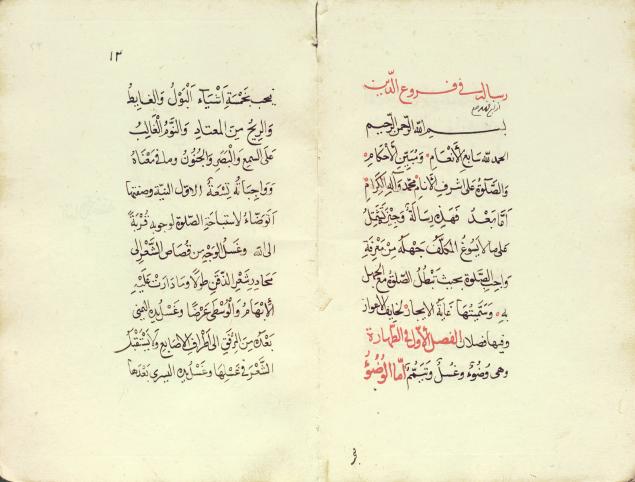 رسالة في فروع الدّين
بسم الله الرحمن الرحيم
الحمد لله سابغ الأنعام ومُبَيّن الأحكام
والصّلوة على اشرف الأنام محمّد وآله الكرام
امّا بعد فهذه رسالة وجيزة تشتمل
على ما لا يسوغ المكلّف جهله من معرفة
واجب الصّلوة بحيث تبطل الصّلوة مع الجهل
به وسمّيتها غاية الايجاز لخايف الاعواز
وفيها فصلان الفصل الأوّل في الطّهارة
وهى وضوء وغسل وتيمّم امّا الوُضُوُء
١٣
يجب بخمسة اشياء البول والغايط
والريح من المعتاد والنوم الغالب
على السمع والبصر والجنون وما في معناه
وواجباته تسعة الاول النية وصفتها
اتوضّاء لاستباحة الصلوة لوجوبه قربة
الى الله وغسل الوجه من قصاص الشّعر الى
محادر شعر الذقن طولا وما دارت عليه
الأبهام والوسطى عرضا وغسل يده اليمنى
بعده من المرفق الى اطراف الاصابع ولا يستقبل
الشّعر في غسلها وغسل يده اليسرى بعدها